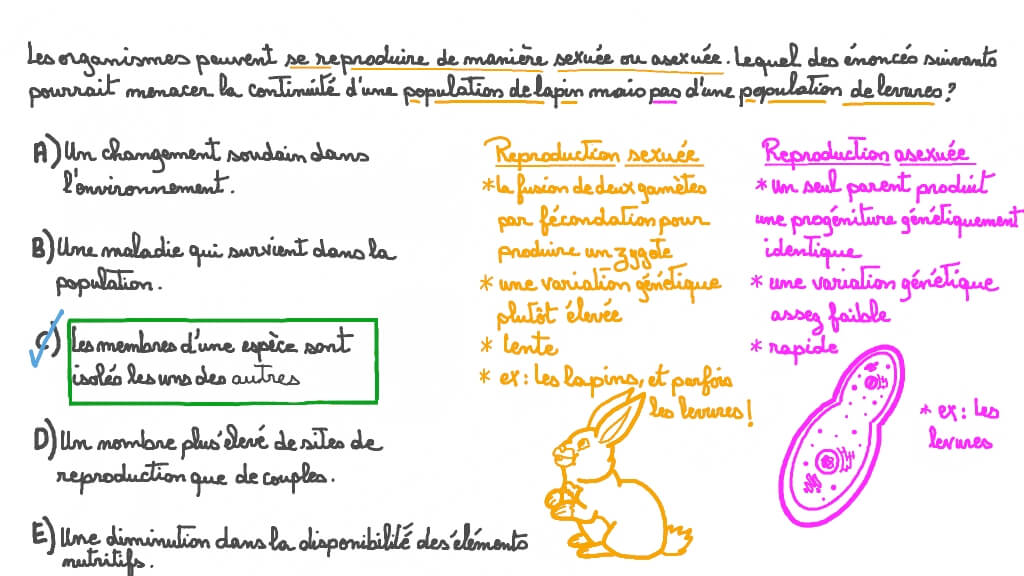 Les organismes peuvent se reproduire de manière sexuée ou asexuée. Lequel des énoncés suivants
pourrait menacer la continuité d'une population de lapin mais pas d'une population de levures ?
A) Un changement soudain dans
l'environnement.
B) Une maladie qui survient dans la
population.
C) Les membres d'une espèce sont
isolés les uns des autres
D) Un nombre plus élevé de sites de
reproduction que de couples.
E) Une diminution dans la disponibilité des éléments
nutritifs.
Reproduction sexuée
* la fusion de deux gamètes
par fécondation pour
produire un zygote
* une variation génétique
plutôt élevée
* lente
* ex : les lapins, et parfois
les levures !
Reproduction asexuée
* un seul parent produit
une progéniture génétiquement
identique
* une variation génétique
assez faible
* rapide
* ex : les
levures